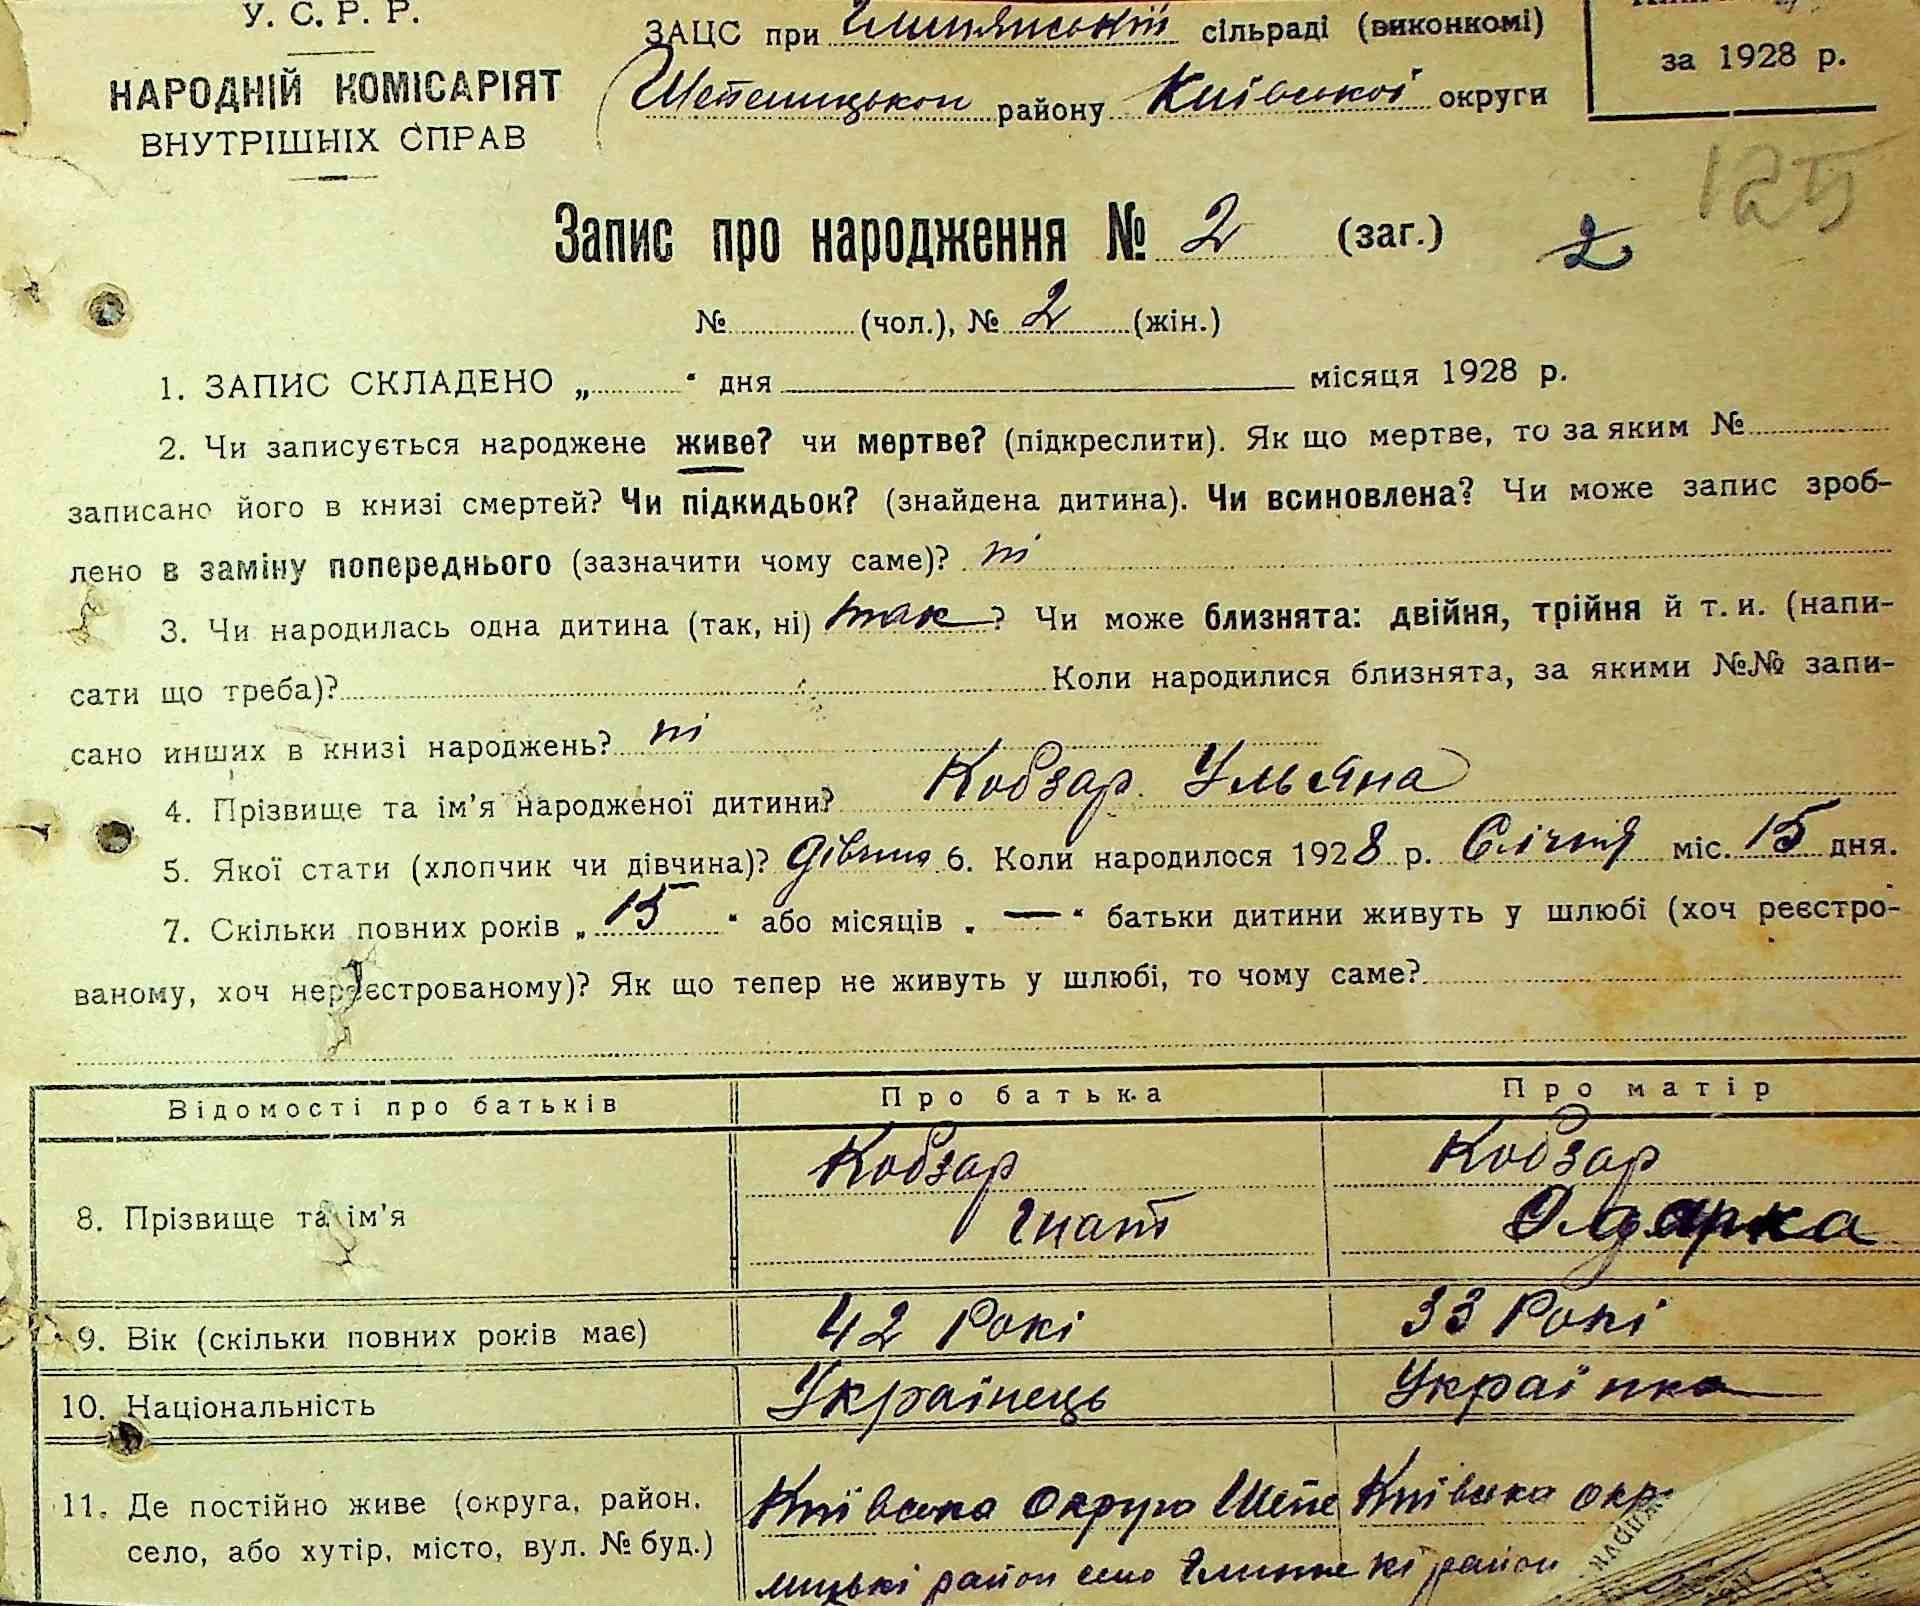 У. С. Р. Р.
НАРОДНІЙ КОМІСАРІЯТ
ВНУТРІШНІХ СПРАВ
ЗАЦС при сільраді (виконкомі)
району Київської округи
за 1928 р.
125
Запис про народження № 2 (заг.) 2
№ (чол.), № 2 (жін.)
1. ЗАПИС СКЛАДЕНО „ “ дня місяця 1928 р.
2. Чи записується народжене живе? чи мертве? (підкреслити). Як що мертве, то за яким №
записано його в книзі смертей? Чи підкидьок? (знайдена дитина). Чи всиновлена? Чи може запис зроб-
лено в заміну попереднього (зазначити чому саме)? ні
3. Чи народилась одна дитина (так, ні) так ? Чи може близнята: двійня, трійня й т. и. (напи-
сати що треба)? Коли народилися близнята, за якими №№ запи-
сано инших в книзі народжень? ні
4. Прізвище та ім’я народженої дитини? Кобзар Ульяна
5. Якої стати (хлопчик чи дівчина)? 6. Коли народилося 1928 р. Січня міс. 15 дня.
7. Скільки повних років „ 15 “ або місяців „ — “ батьки дитини живуть у шлюбі (хоч реєстро-
ваному, хоч нереєстрованому)? Як що тепер не живуть у шлюбі, то чому саме?
Відомості про батьків Про батька Про матір
8. Прізвище та ім’я Кобзар Гнат Кобзар Одарка
9. Вік (скільки повних років має) 42 Рокі 33 Рокі
10. Національність Українець Українка
11. Де постійно живе (округа, район, Київська округа Шепе Київська окр
село, або хутір, місто, вул. № буд.) район село район